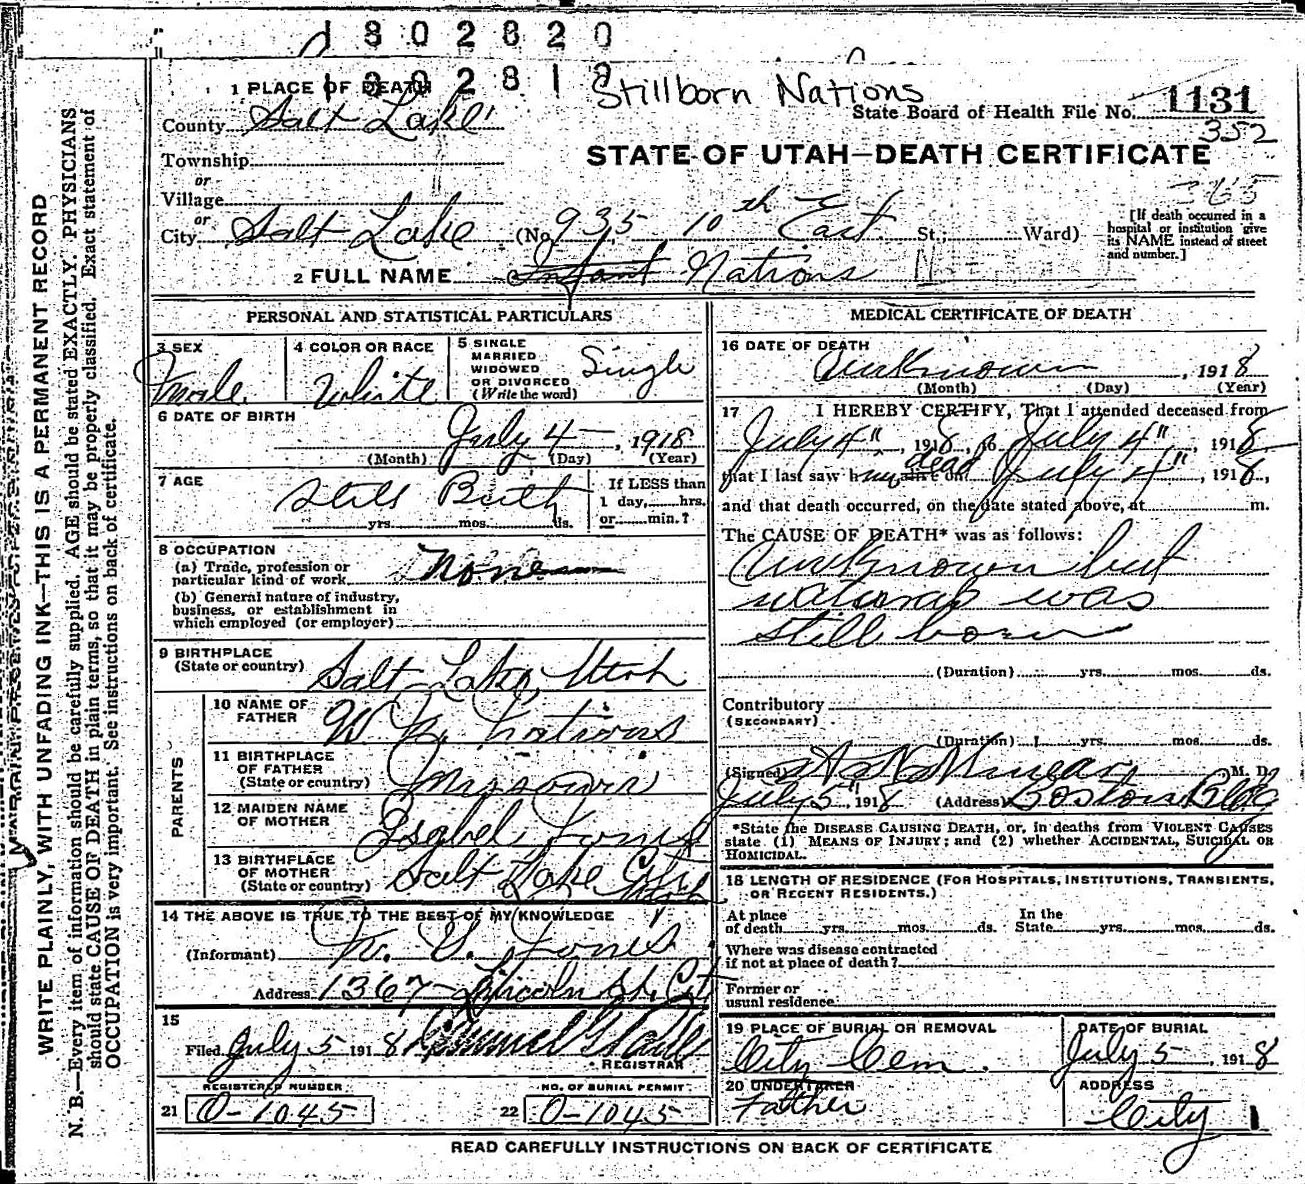 1802820
1302818
Stillborn Nations
1 PLACE OF DEATH
State Board of Health File No. 1131
352
County Salt Lake
STATE OF UTAH—DEATH CERTIFICATE
Township
or
Village
365
or
City Salt Lake (No. 935 10th East St.; Ward)
[If death occurred in a hospital or institution give its NAME instead of street and number.]
2 FULL NAME Infant Nations
PERSONAL AND STATISTICAL PARTICULARS
3 SEX
Male
4 COLOR OR RACE
White
5 SINGLE
MARRIED
WIDOWED
OR DIVORCED
(Write the word)
Single
6 DATE OF BIRTH
July 4, 1918
(Month) (Day) (Year)
7 AGE
Still Birth
yrs. mos. ds.
If LESS than
1 day, hrs.
or min.?
8 OCCUPATION
(a) Trade, profession or
particular kind of work None
(b) General nature of industry,
business, or establishment in
which employed (or employer)
9 BIRTHPLACE
(State or country) Salt Lake, Utah
PARENTS
10 NAME OF
FATHER
W Nations
11 BIRTHPLACE
OF FATHER
(State or country) Missouri
12 MAIDEN NAME
OF MOTHER Isabel Jones
13 BIRTHPLACE
OF MOTHER
(State or country) Salt Lake City
Utah
14 THE ABOVE IS TRUE TO THE BEST OF MY KNOWLEDGE
(Informant) Jones
Address 1367 Lincoln St. City
15
Filed July 5 1918
REGISTRAR
REGISTERED NUMBER
21 O-1045
NO. OF BURIAL PERMIT
22 O-1045
MEDICAL CERTIFICATE OF DEATH
16 DATE OF DEATH
Unknown, 1918
(Month) (Day) (Year)
17 I HEREBY CERTIFY, That I attended deceased from
July 4", 1918, to July 4", 1918
that I last saw him alive on dead July 4", 1918,
and that death occurred, on the date stated above, at m.
The CAUSE OF DEATH* was as follows:
Unknown but
was
still born
(Duration) yrs. mos. ds.
Contributory
(SECONDARY)
(Duration) yrs. mos. ds.
(Signed) M. D.
July 5", 1918 (Address) Boston Bldg
*State the DISEASE CAUSING DEATH, or, in deaths from VIOLENT CAUSES
state (1) MEANS OF INJURY; and (2) whether ACCIDENTAL, SUICIDAL OR
HOMICIDAL.
18 LENGTH OF RESIDENCE (FOR HOSPITALS, INSTITUTIONS, TRANSIENTS,
OR RECENT RESIDENTS.)
At place
of death yrs. mos. ds.
In the
State yrs. mos. ds.
Where was disease contracted
if not at place of death?
Former or
usual residence
19 PLACE OF BURIAL OR REMOVAL
City Cem.
DATE OF BURIAL
July 5, 1918
20 UNDERTAKER
Father
ADDRESS
City
READ CAREFULLY INSTRUCTIONS ON BACK OF CERTIFICATE
WRITE PLAINLY, WITH UNFADING INK—THIS IS A PERMANENT RECORD
N. B.—Every item of information should be carefully supplied. AGE should be stated EXACTLY. PHYSICIANS
should state CAUSE OF DEATH in plain terms, so that it may be properly classified. Exact statement of
OCCUPATION is very important. See instructions on back of certificate.